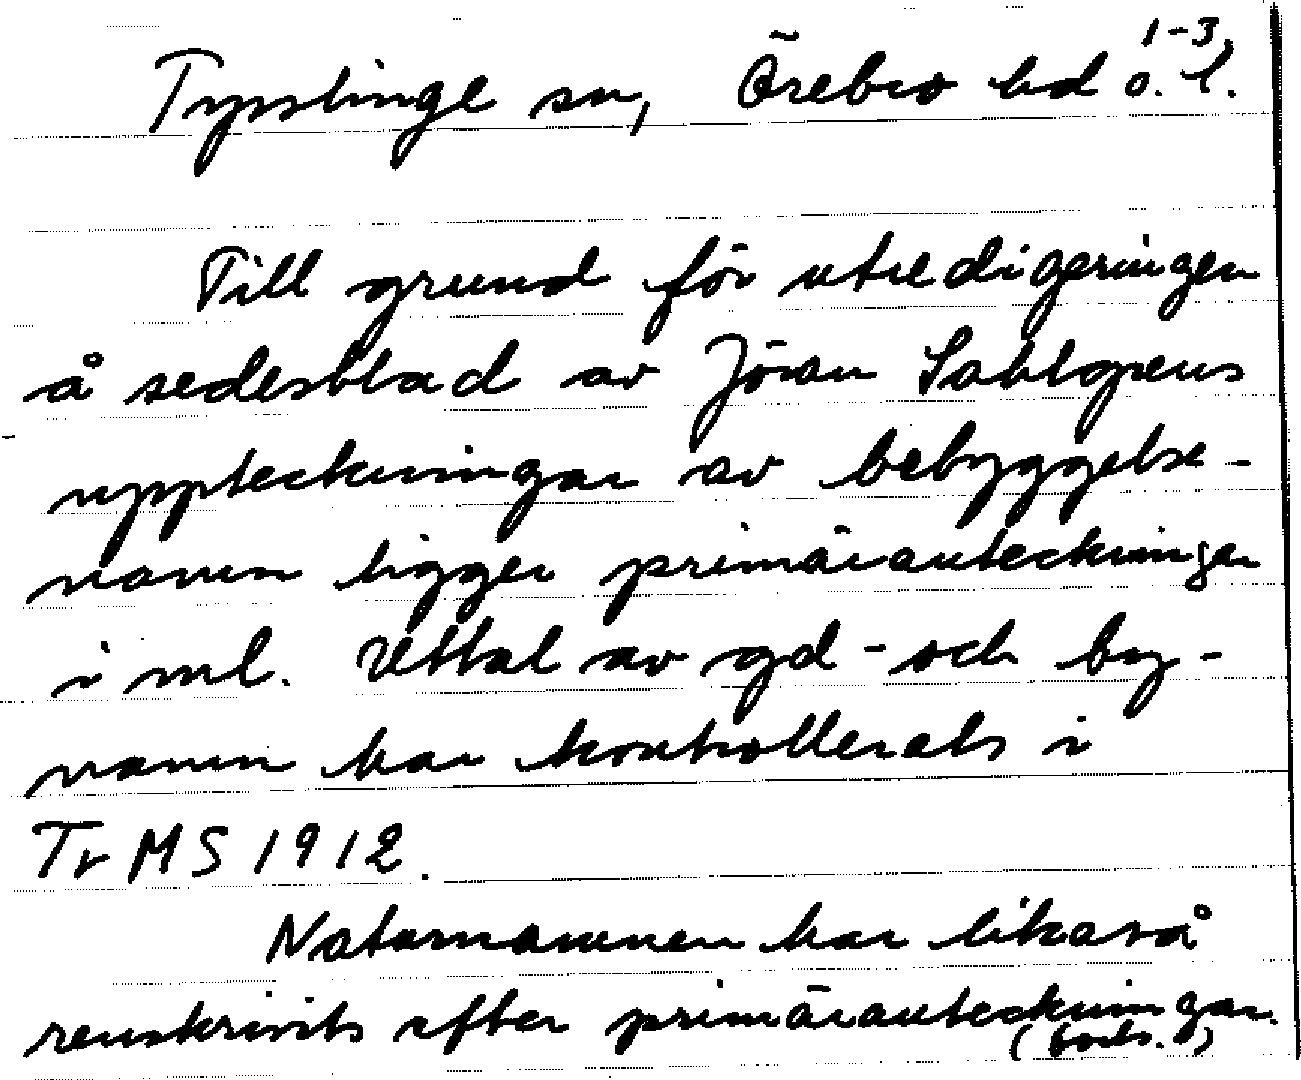 1-3,
Tysslinge sn, Örebro hd ö. l.
Till grund för utredigeringen
å sedesblad av Jöran Sahlgrens
uppteckningar av bebyggelse-
namn ligger primäranteckningar
i ml. Uttal av gd- och by-
namn har kontrollerats i
Tr MS 1912.
Naturnamnen har likaså
renskrivits efter primäranteckningar.
(forts.)